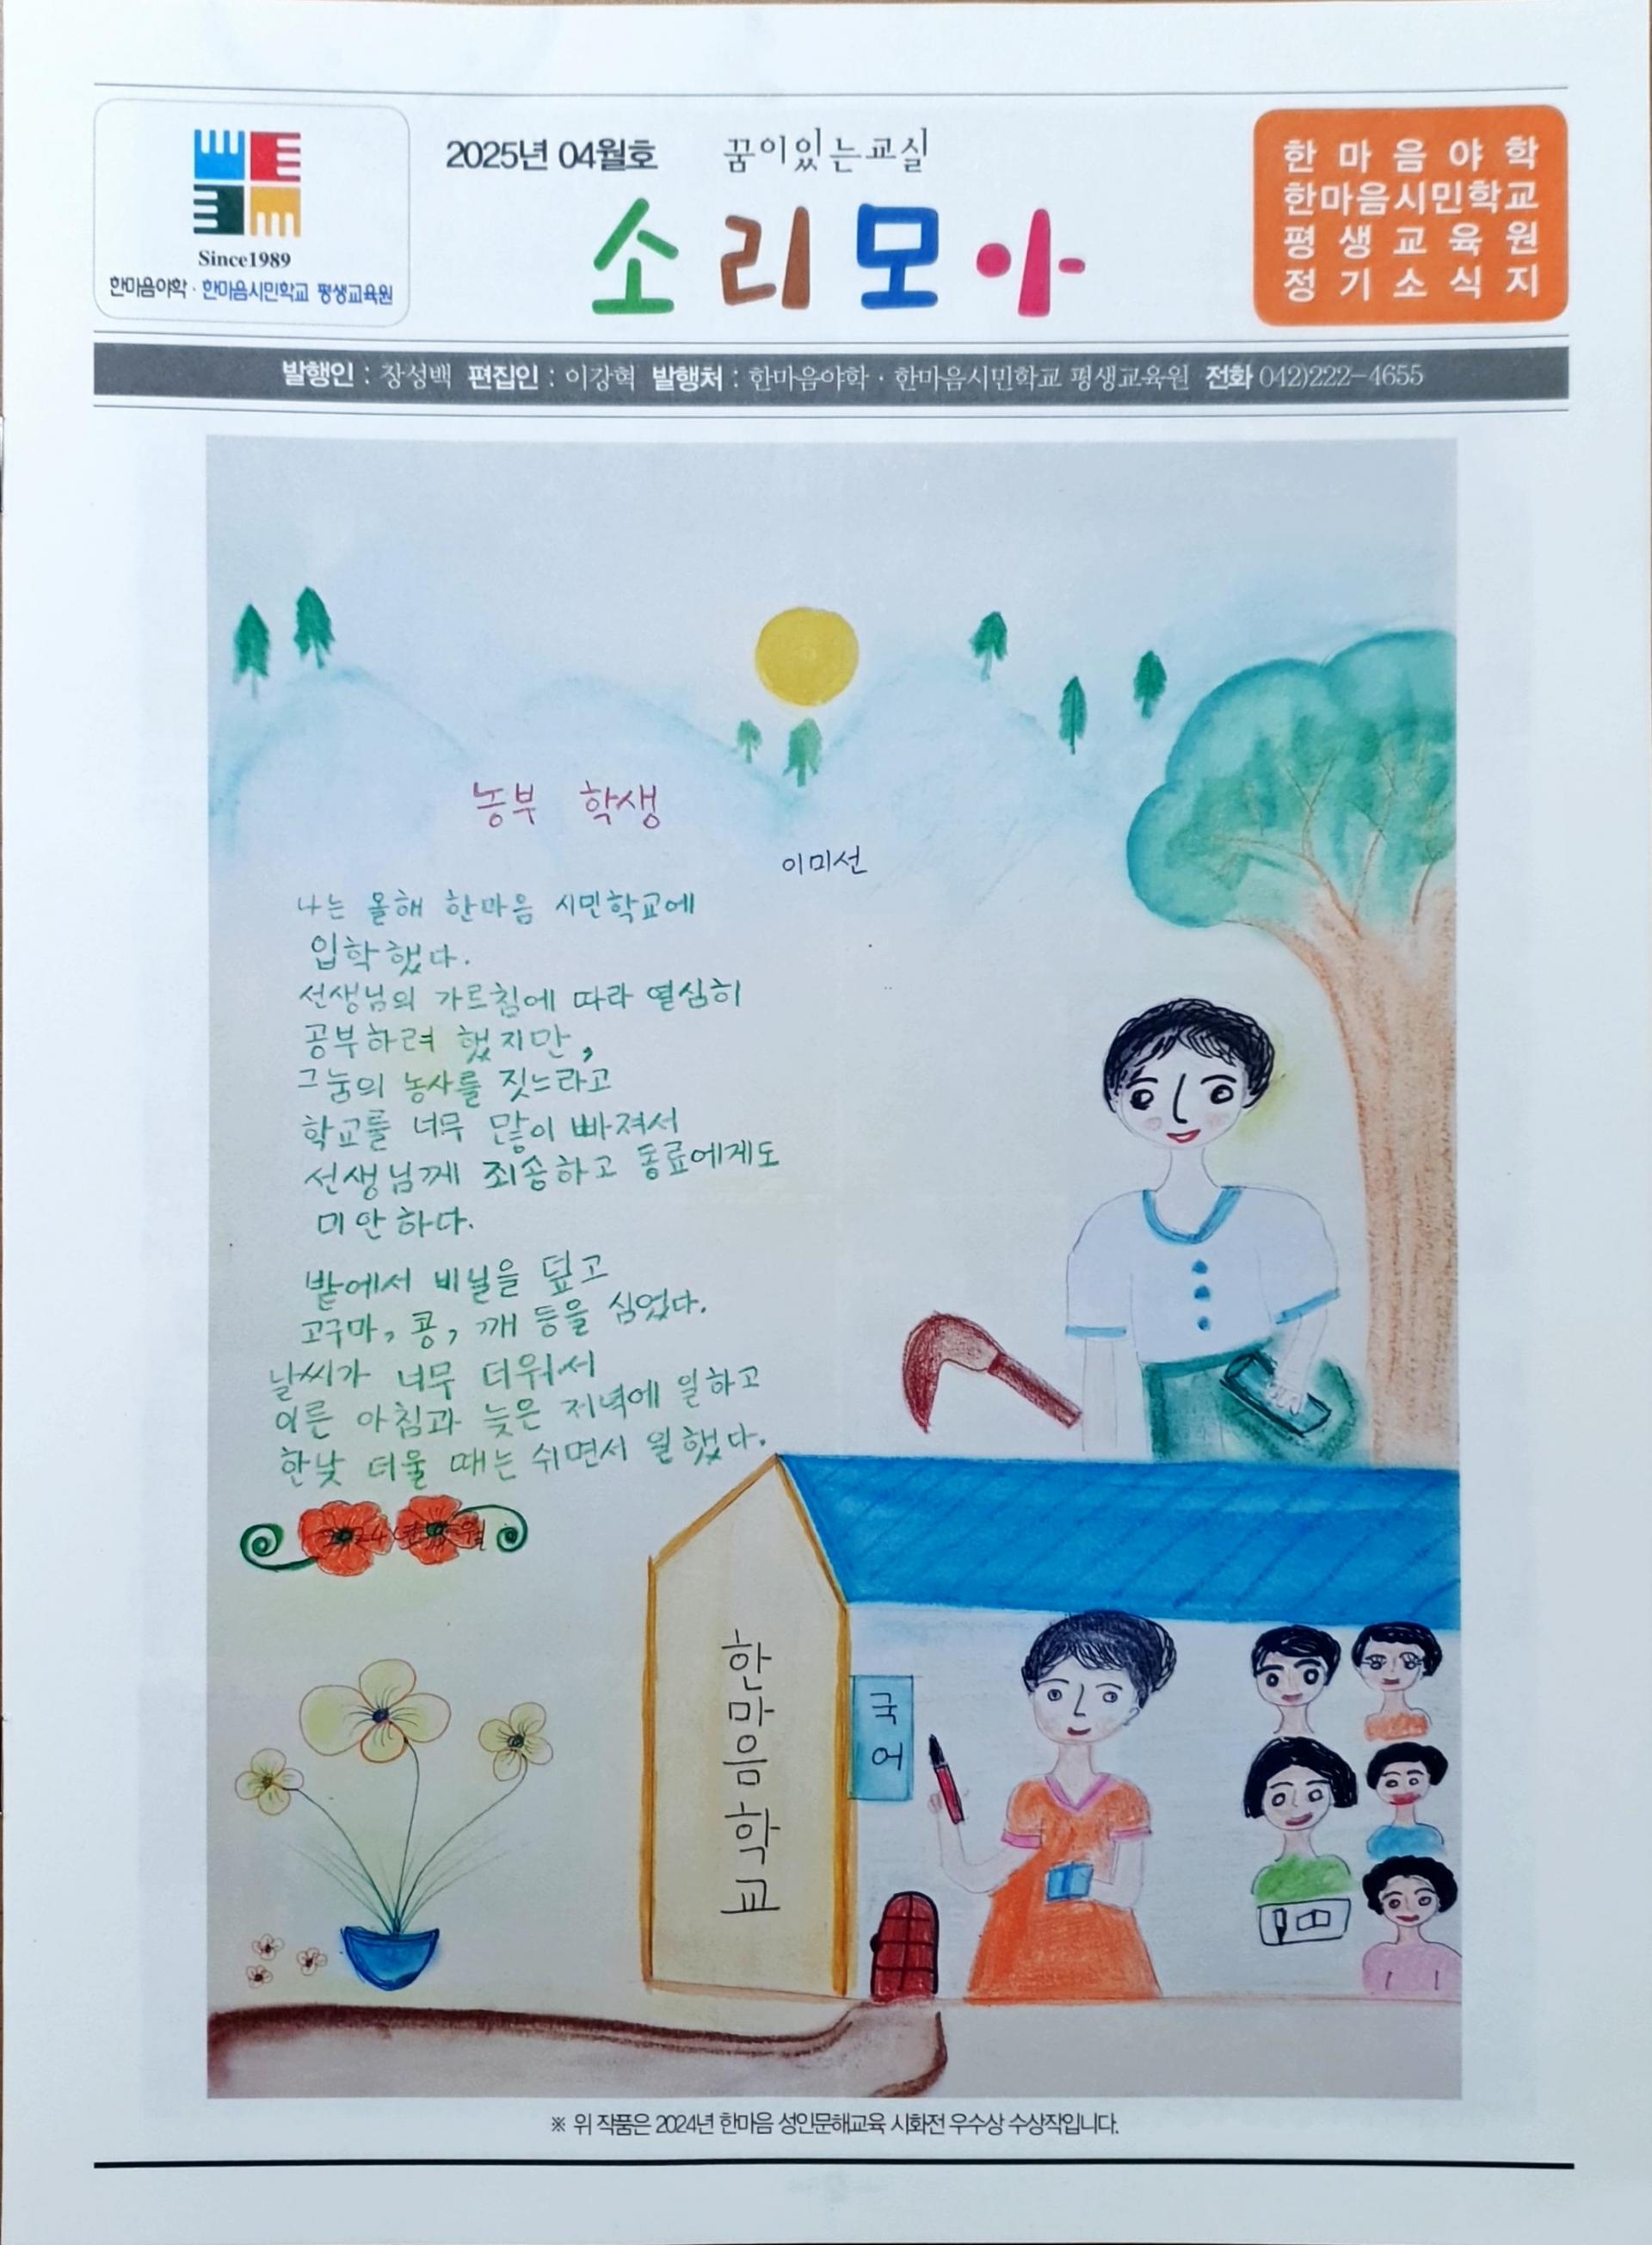 Since1989
한마음야학 · 한마음시민학교 평생교육원
2025년 04월호 꿈이있는교실
소리모아
한마음야학
한마음시민학교
평생교육원
정기소식지
발행인 : 장성백 편집인 : 이강혁 발행처 : 한마음야학 · 한마음시민학교 평생교육원 전화 042)222-4655
농부 학생
이미선
나는 올해 한마음 시민학교에
입학했다.
선생님의 가르침에 따라 열심히
공부하려 했지만,
그놈의 농사를 짓느라고
학교를 너무 많이 빠져서
선생님께 죄송하고 동료에게도
미안하다.
밭에서 비닐을 덮고
고구마, 콩, 깨 등을 심었다.
날씨가 너무 더워서
이른 아침과 늦은 저녁에 일하고
한낮 더울 때는 쉬면서 일했다.
2024년
한마음학교
국어
※ 위 작품은 2024년 한마음 성인문해교육 시화전 우수상 수상작입니다.